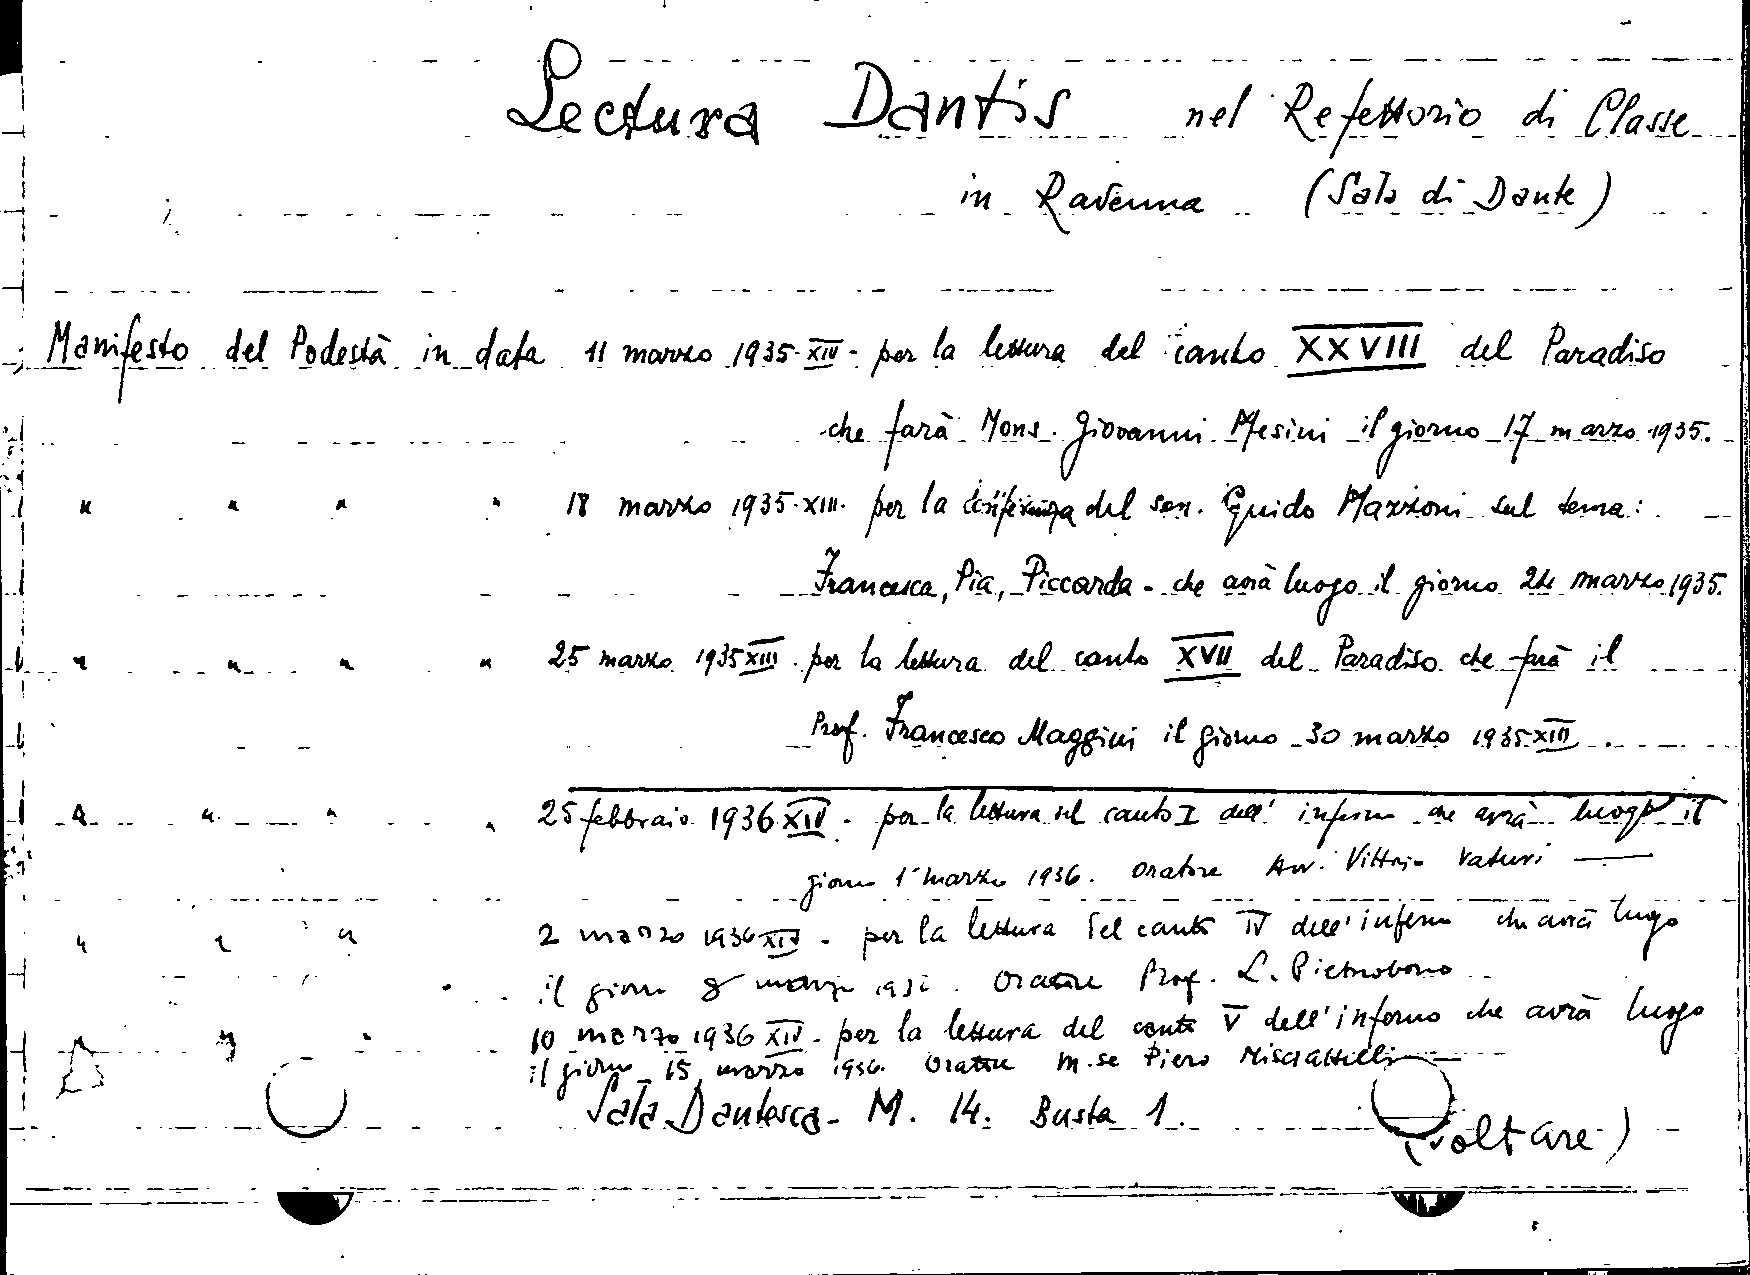 Lectura Dantis nel Refettorio di Classe
in Ravenna (Sala di Dante)
Manifesto del Podestà in data 11 marzo 1935-XIV- per la lettura del canto XXVIII del Paradiso
che farà Mons. Giovanni Mesini il giorno 17 marzo 1935.
" " " " 18 marzo 1935-XIII- per la conferenza del sen. Guido Mazzoni sul tema:
Francesca, Pia, Piccarda - che avrà luogo il giorno 24 marzo 1935.
" " " " 25 marzo 1935 XIII. per la lettura del canto XVII del Paradiso che farà il
Prof. Francesco Maggini il giorno 30 marzo 1935 XIII.
" " " " 25 febbraio 1936 XIV. per la lettura del canto I dell' inferno che avrà luogo il
giorno 1° marzo 1936. Oratore Avv. Vittorio Vaturi
" " " 2 marzo 1936 XIV - per la lettura del canto IV dell'inferno che avrà luogo
il giorno 8 marzo 1936. Oratore Prof. L. Pietrobono
" " 10 marzo 1936 XIV - per la lettura del canto V dell'inferno che avrà luogo
il giorno 15 marzo 1936. Oratore M.se Piero Misciattelli
Sala Dantesca - M. 14. Busta 1.
(voltare)